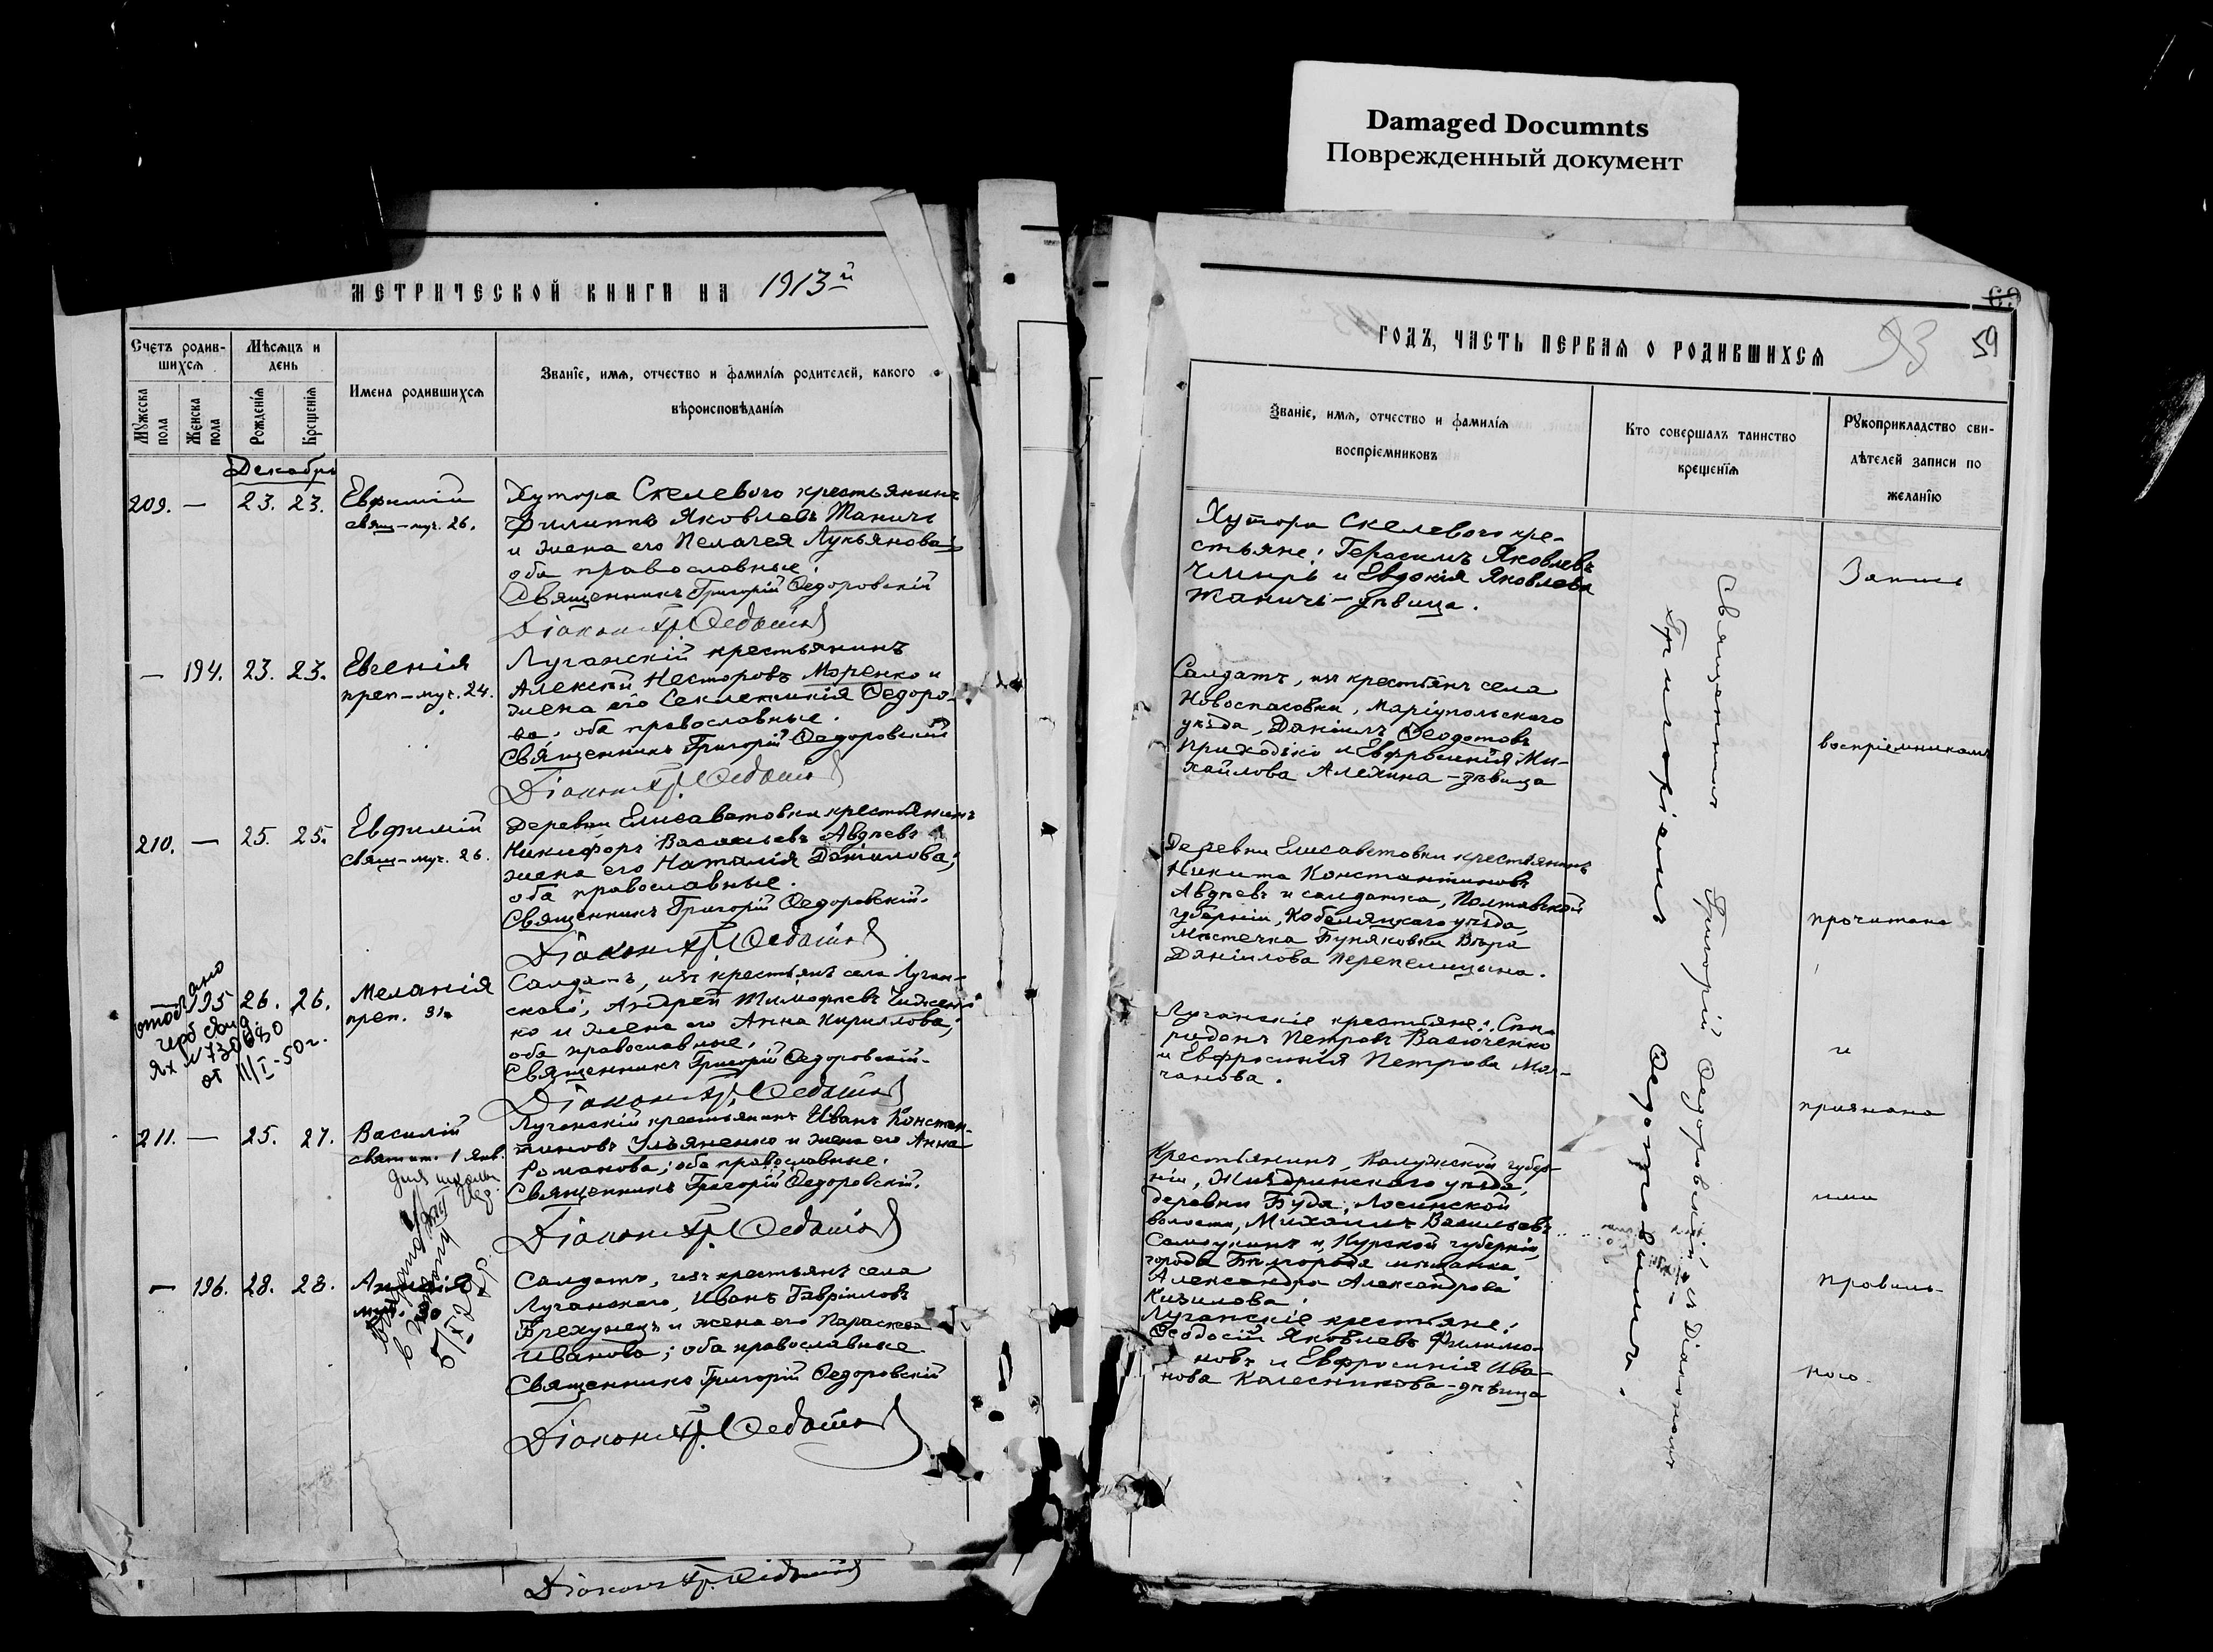 Damaged Documnts
Поврежденный документ
МЕТРИЧЕСКОЙ КНИГИ НА 1913й
Счетъ родив-
шихся
Мѣсяцъ и
день
Мужеска
пола
Женска
пола
Рожденія
Крещенія
Имена родившихся
Званіе, имя, отчество и фамилія родителей, какого
вѣроисповѣданія
Декабрь
209. — 23. 23. Евфимій
свящ-муч. 26.
Хутора Скелевого крестьянинъ
Филиппъ Яковлевъ Жаничъ
и жена его Пелагея Лукьянова;
оба православные.
Священникъ Григорій Ѳедоровскій
Діаконъ
— 194. 23. 23. Евгенія
преп-муч. 24.
Луганскій крестьянинъ
Алексѣй Несторовъ Моренко и
жена его Секлетикія Ѳедоро-
ва; оба православные.
Священникъ Григорій Ѳедоровскій
Діаконъ
210. — 25. 25. Евфимій
свящ-муч. 26.
Деревни Елисаветовки крестьянинъ
Никифоръ Васильевъ Авдѣевъ и
жена его Наталія Даніилова;
оба православные.
Священникъ Григорій Ѳедоровскій.
Діаконъ
195 26. 26. Меланія
преп. 31.
Солдатъ, изъ крестьянъ села Луган-
скаго, Андрей Тимофеевъ Чижен-
ко и жена его Анна Кириллова;
оба православные.
Священникъ Григорій Ѳедоровскій.
Діаконъ
от 11/I-50г.
211. — 25. 27. Василій
святит. 1 Янв.
Луганскій крестьянинъ Иванъ Констан-
тиновъ Ульяненко и жена его Анна
Романова; оба православные.
Священникъ Григорій Ѳедоровскій.
Діаконъ
— 196. 28. 28. Анисія
муч. 30
Солдатъ, изъ крестьянъ села
Луганскаго, Иванъ Гавріиловъ
Брехунецъ и жена его Параскева
Иванова; оба православные.
Священникъ Григорій Ѳедоровскій
Діаконъ
Діаконъ
59
93
ГОДЪ, ЧАСТЬ ПЕРВАЯ О РОДИВШИХСЯ
Званіе, имя, отчество и фамилія
воспріемниковъ
Кто совершалъ таинство
крещенія
Рукоприкладство сви-
дѣтелей записи по
желанію
Хутора Скелевого кре-
стьяне: Герасимъ Яковлевъ
Чмырь и Евдокія Яковлева
Жаничъ-дѣвица.
Солдатъ, изъ крестьянъ села
Новоспасовки, Маріупольскаго
уѣзда, Даніилъ Ѳеодотовъ
Приходько и Евфросинія Ми-
хайлова Алехина-дѣвица
Деревни Елисаветовки крестьянинъ
Никита Константиновъ
Авдѣевъ и солдатка, Полтавской
губерніи, Кобелякскаго уѣзда,
Мѣстечка Буняковки Вѣра
Даніилова Перепелицына.
Луганскіе крестьяне: Спи-
ридонъ Петровъ Васюченко
и Евфросинія Петрова Мол-
чанова.
Крестьянинъ, Калужской губер-
ніи, Жиздринскаго уѣзда,
деревни Буда, Лосинской
волости, Михаилъ Васильевъ
Самохинъ и, Курской губерніи,
города Бѣлгорода мѣщанка
Александра Александрова
Кизилова.
Луганскіе крестьяне:
Ѳеодосій Яковлевъ Филимо-
новъ и Евфросинія Ива-
нова Колесникова-дѣвица
Священникъ Григорій Ѳедоровскій съ Діакономъ
Григоріемъ Ѳедотовымъ.
Запись
воспріемникамъ
прочитана
и
признана
ими
правиль-
ною.